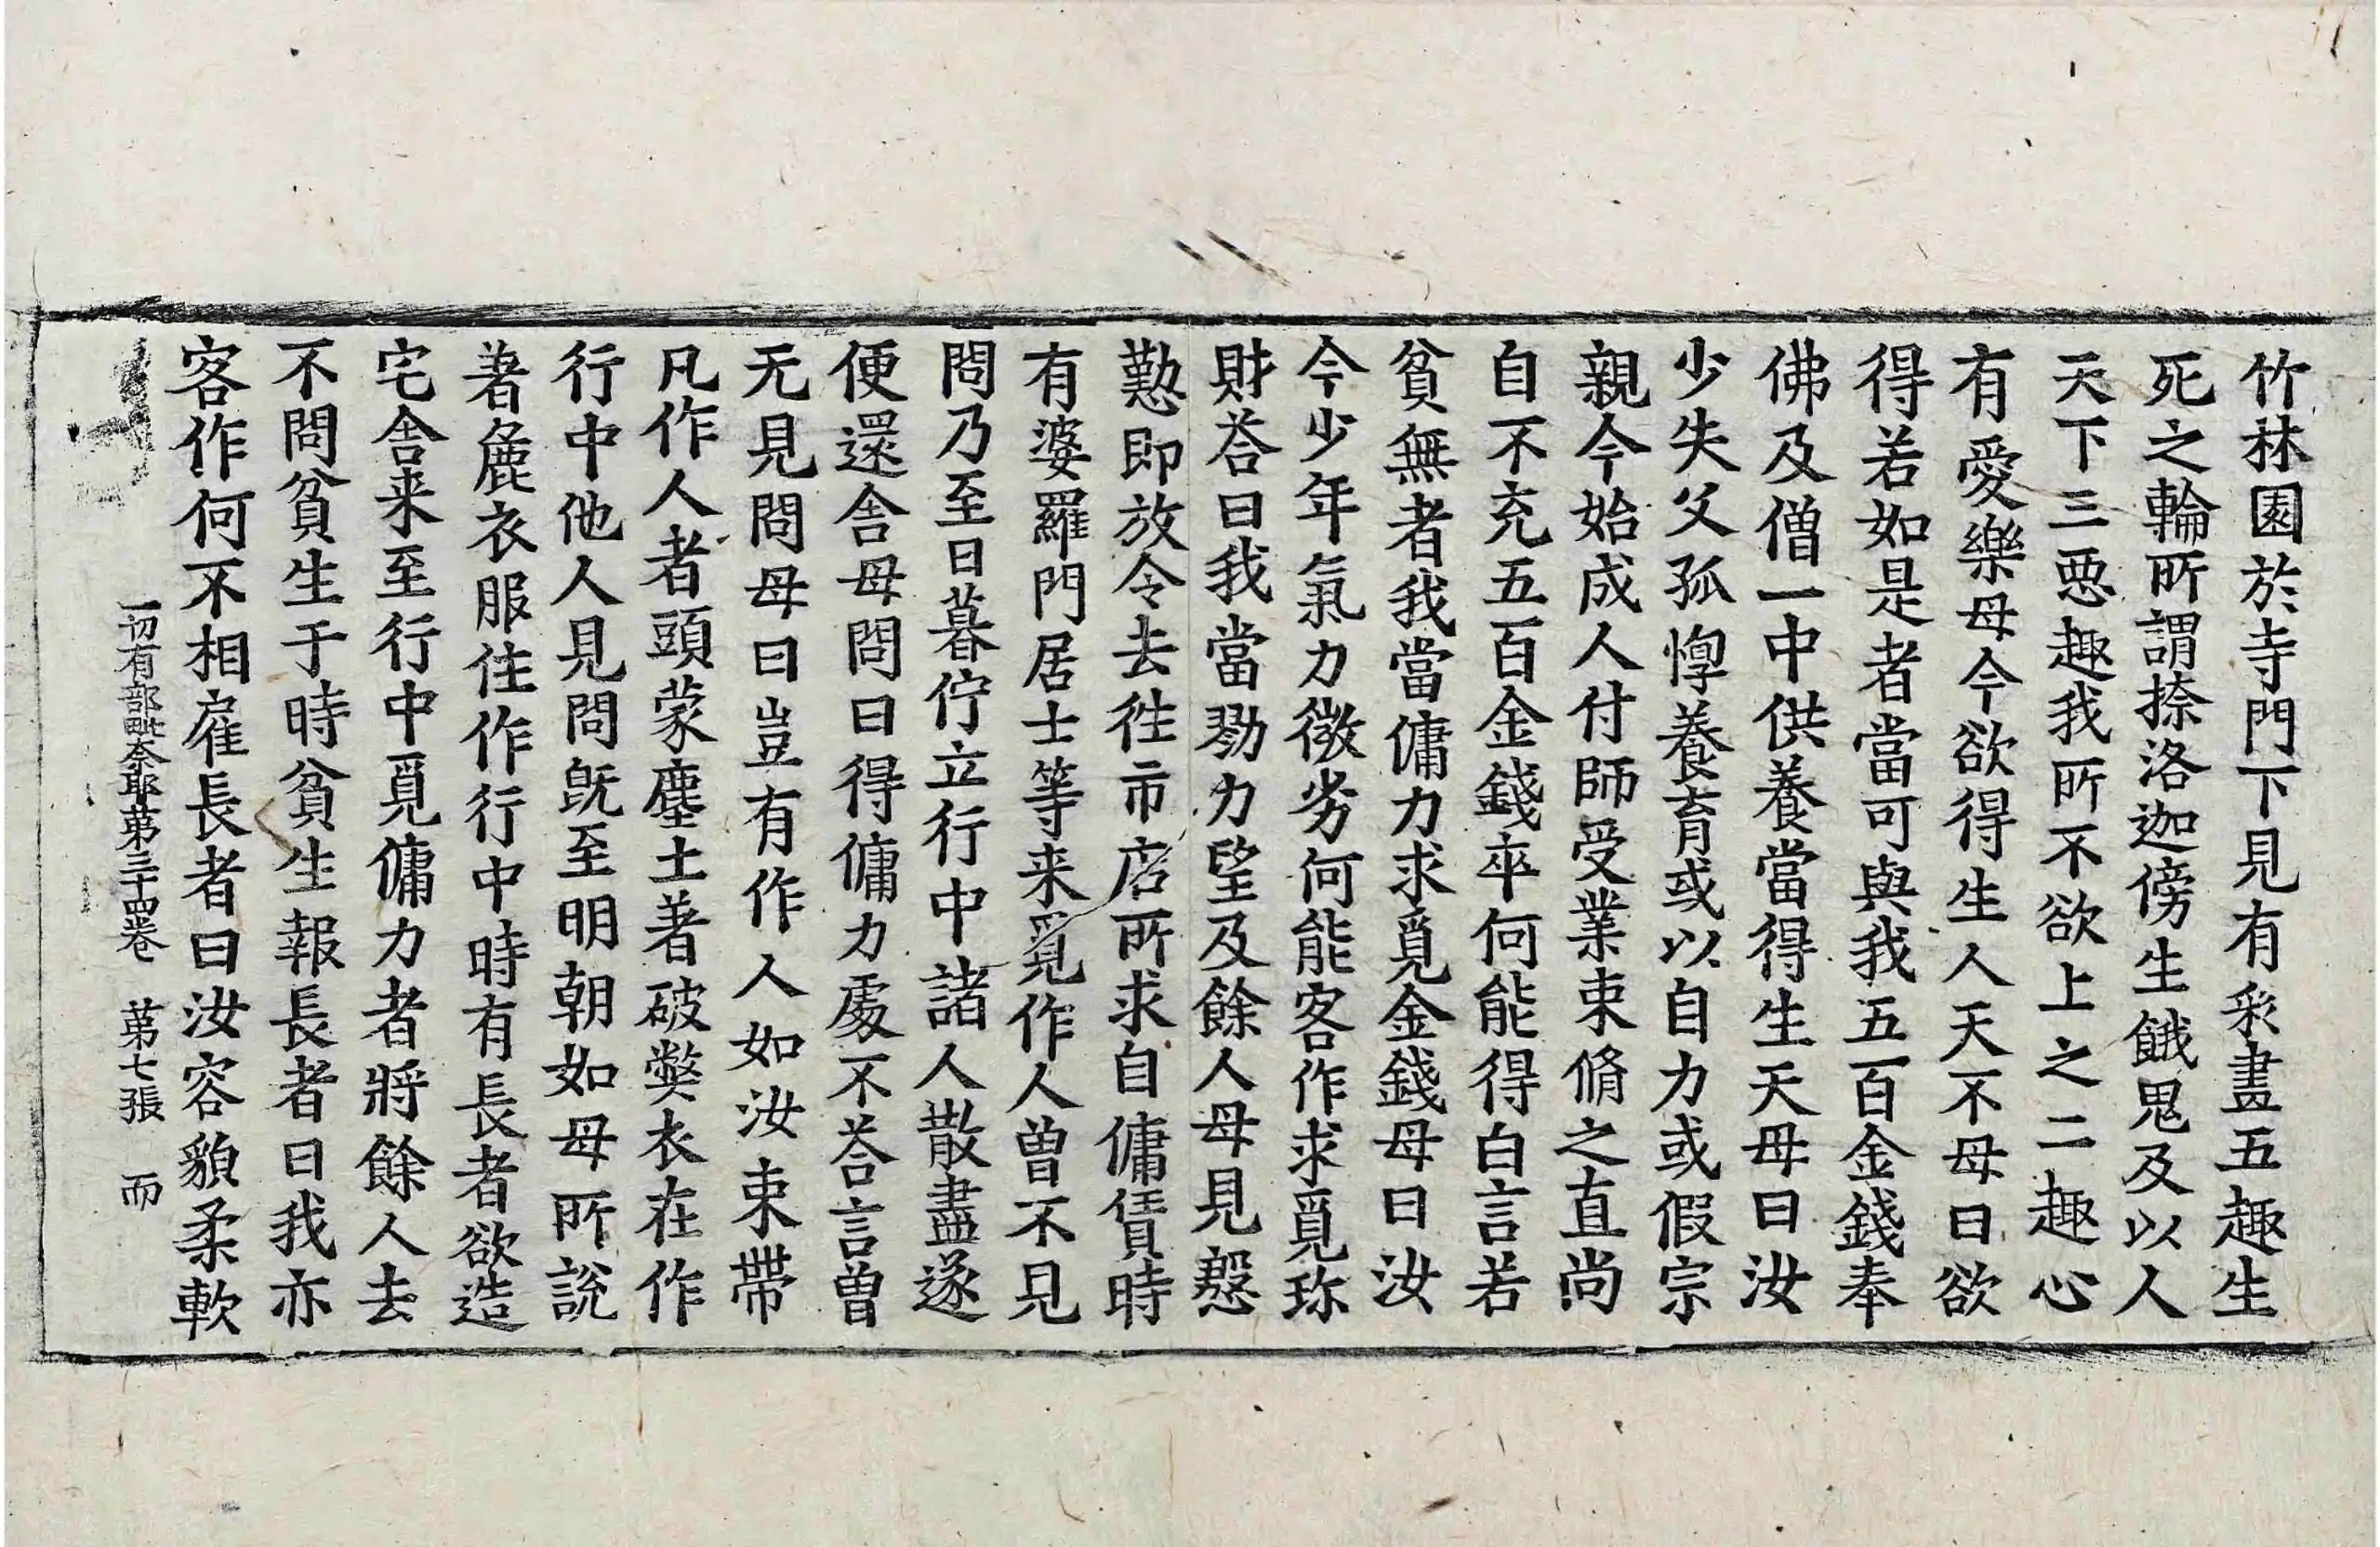 竹林園於寺門下見有彩畫五趣生
死之輪所謂捺洛迦傍生餓鬼及以人
天下三惡趣我所不欲上之二趣心
有愛樂母今欲得生人天不母曰欲
得若如是者當可與我五百金錢奉
佛及僧一中供養當得生天母曰汝
少失父孤惸養育或以自力或假宗
親今始成人付師受業束脩之直尚
自不充五百金錢卒何能得白言若
貧無者我當傭力求覓金錢母曰汝
今少年氣力微劣何能客作求覓珎
財荅曰我當勠力望及餘人母見慇
懃即放令去徃市店所求自傭賃時
有婆羅門居士等来覓作人曾不見
問乃至日暮佇立行中諸人散盡遂
便還舍母問曰得傭力處不荅言曾
无見問母曰豈有作人如汝束帶
凡作人者頭蒙塵土著破弊衣在作
行中他人見問旣至明朝如母所說
著麁衣服住作行中時有長者欲造
宅舍来至行中覓傭力者將餘人去
不問貧生于時貧生報長者曰我亦
客作何不相雇長者曰汝容貌柔軟
一切有部毗奈耶苐三十四卷 苐七張 而